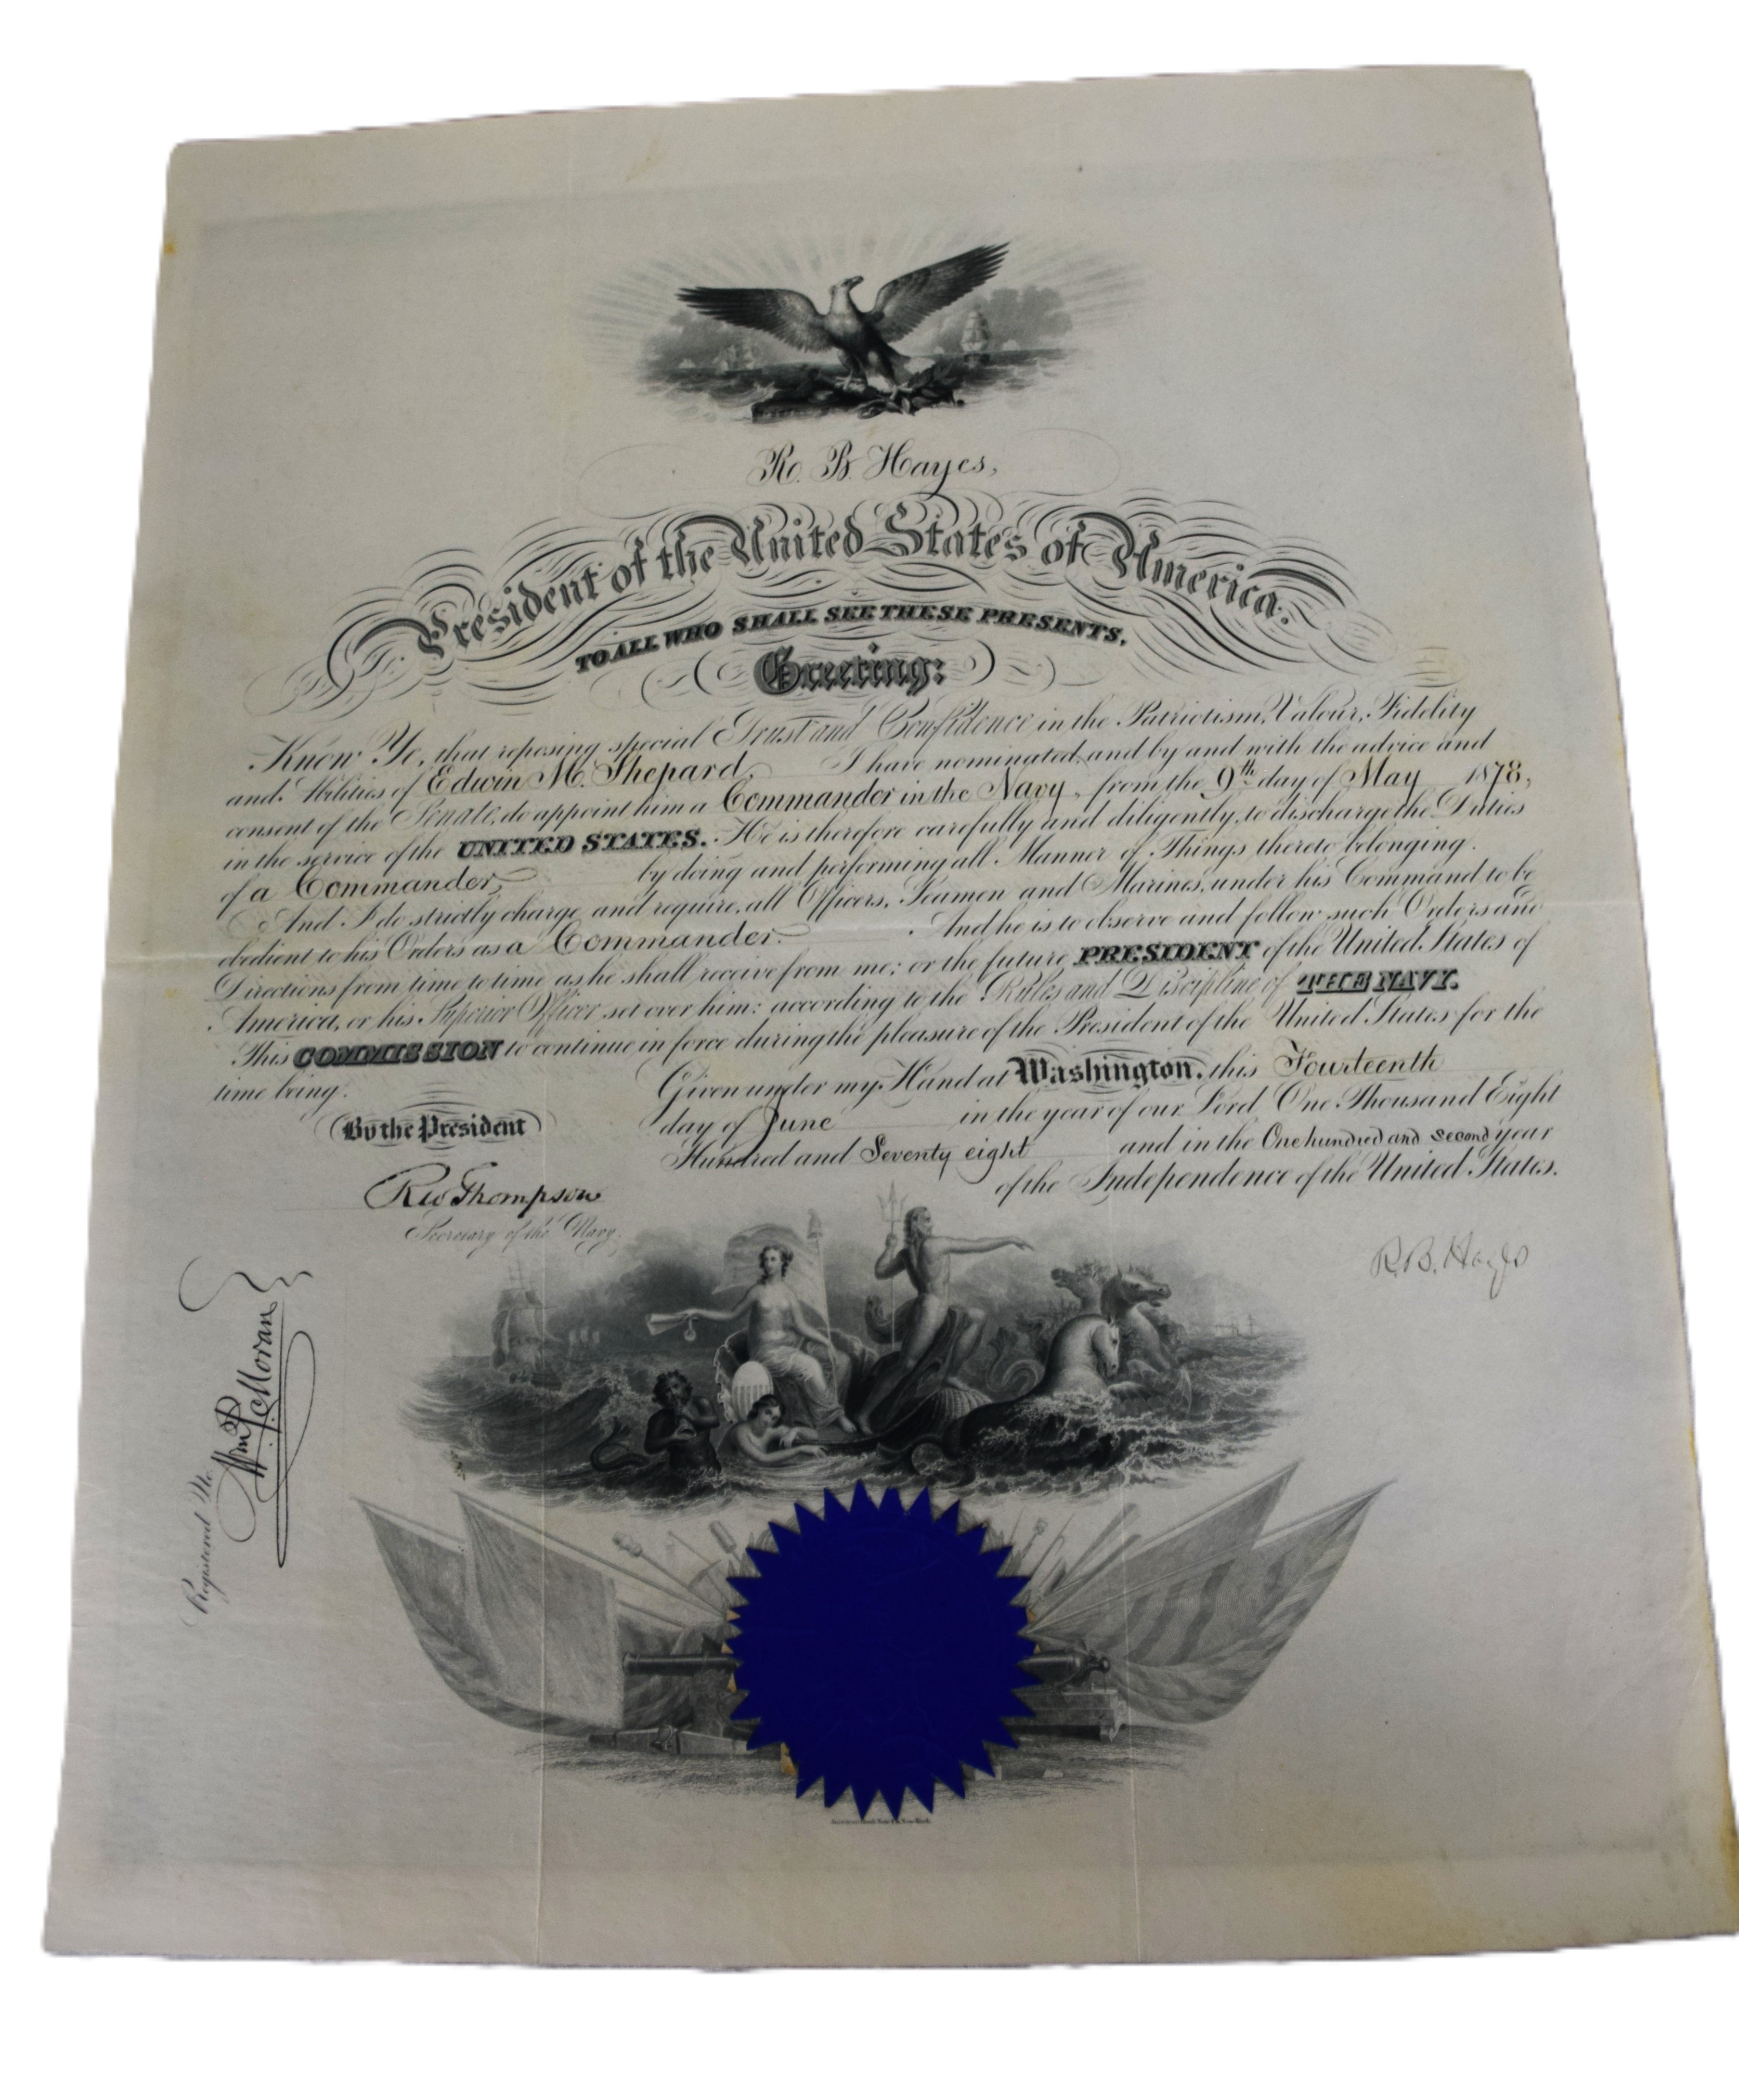 R. B. Hayes,
President of the United States of America.
TO ALL WHO SHALL SEE THESE PRESENTS,
Greeting:
Know Ye, that reposing special Trust and Confidence in the Patriotism, Valour, Fidelity
and Abilities of Edwin M. Shepard, I have nominated, and by and with the advice and
consent of the Senate, do appoint him a Commander in the Navy, from the 9th day of May 1878,
in the service of the UNITED STATES. He is therefore carefully and diligently, to discharge the Duties
of a Commander, by doing and performing all Manner of Things thereto belonging.
And I do strictly charge and require, all Officers, Seamen and Marines, under his Command to be
obedient to his Orders as a Commander. And he is to observe and follow such Orders and
Directions from time to time as he shall receive from me; or the future PRESIDENT of the United States of
America, or his Superior Officer set over him: according to the Rules and Discipline of THE NAVY.
This COMMISSION to continue in force during the pleasure of the President of the United States for the
time being.
Given under my Hand at Washington, this Fourteenth
day of June in the year of our Lord One Thousand Eight
Hundred and Seventy eight and in the One hundred and second year
of the Independence of the United States.
By the President
R W Thompson
Secretary of the Navy.
R. B. Hayes
Registered No.
Wm P. Moran